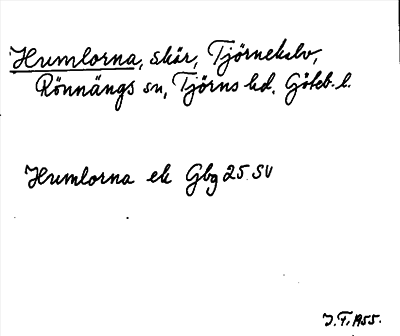 Humlorna, skär, Tjörnekalv,
Rönnängs sn, Tjörns hd. Göteb. l.
Humlorna ek Gbg 25 SV
J.T. 1955.